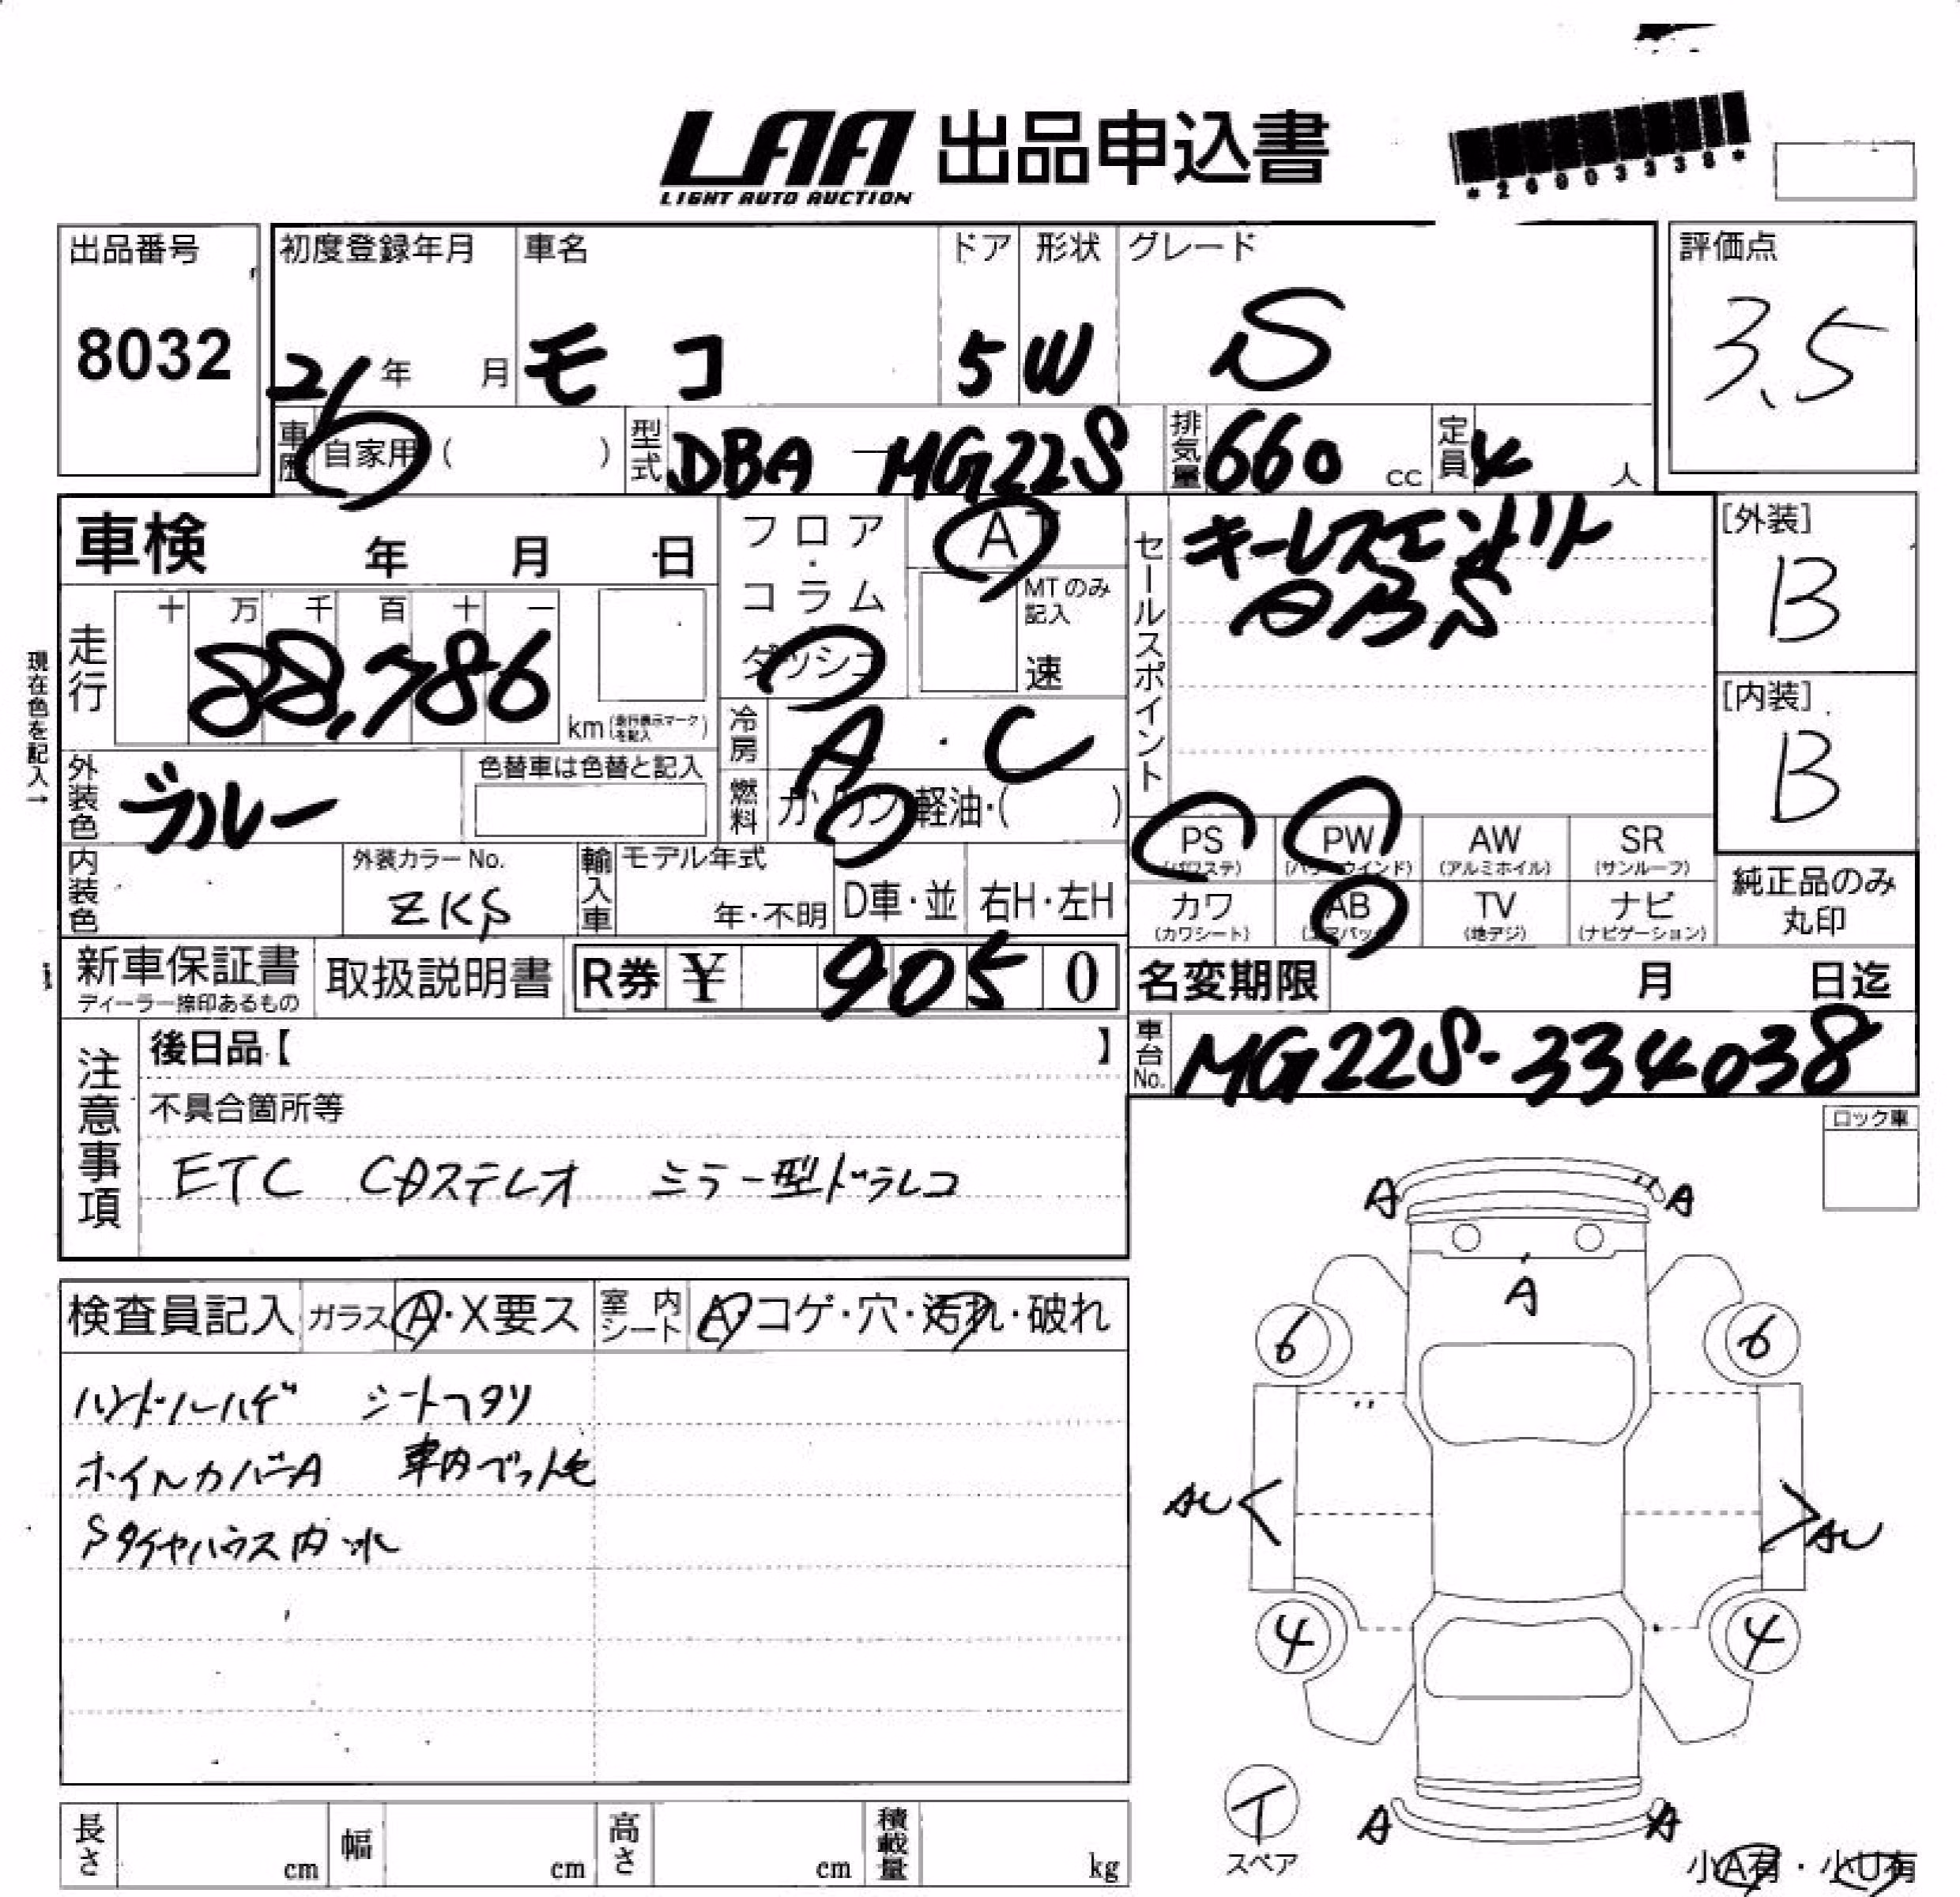 LAA 出品申込書
LIGHT AUTO AUCTION
*26903338*
出品番号 初度登録年月 車名 ドア 形状 グレード 評価点
8032 21年 月 モコ 5 W S 3.5
車歴 自家用 ( ) 型式 DBA-MG22S 排気量 660 cc 定員 4 人
車検 年 月 日
フロア・コラム
ダッシュ
AT
MTのみ記入
速
現在色を記入→
走行 十 万 千 百 十 一
km (走行表示マークを記入)
786
冷房 A・C
燃料 ガソリン 軽油・( )
外装色 ブルー 色替車は色替と記入
内装色 外装カラーNo. ZKS
輸入車 モデル年式 年・不明 D車・並 右H・左H
セールスポイント
キーレスエントリー
ABS
[外装]
B
[内装]
B
PS (パワステ) PW (パワーウインド) AW (アルミホイル) SR (サンルーフ)
カワ (カワシート) AB (エアバック) TV (地デジ) ナビ (ナビゲーション)
純正品のみ丸印
新車保証書
ディーラー捺印あるもの
取扱説明書 R券 ¥ 905 0
名変期限 月 日迄
車台No. MG22S-334038
注意事項
後日品【 】
不具合箇所等
ETC CDステレオ ミラー型ドラレコ
ロック車
検査員記入 ガラス A・X要ス 室内シート A コゲ・穴・汚れ・破れ
ハンドルハゲ シートヘタリ
ホイルカバーA 車内ペット毛
Sタイヤハウス内水
A A
A
6 6
AU AU
4 4
T
スペア
A A
小A有・小U有
長さ cm 幅 cm 高さ cm 積載量 kg